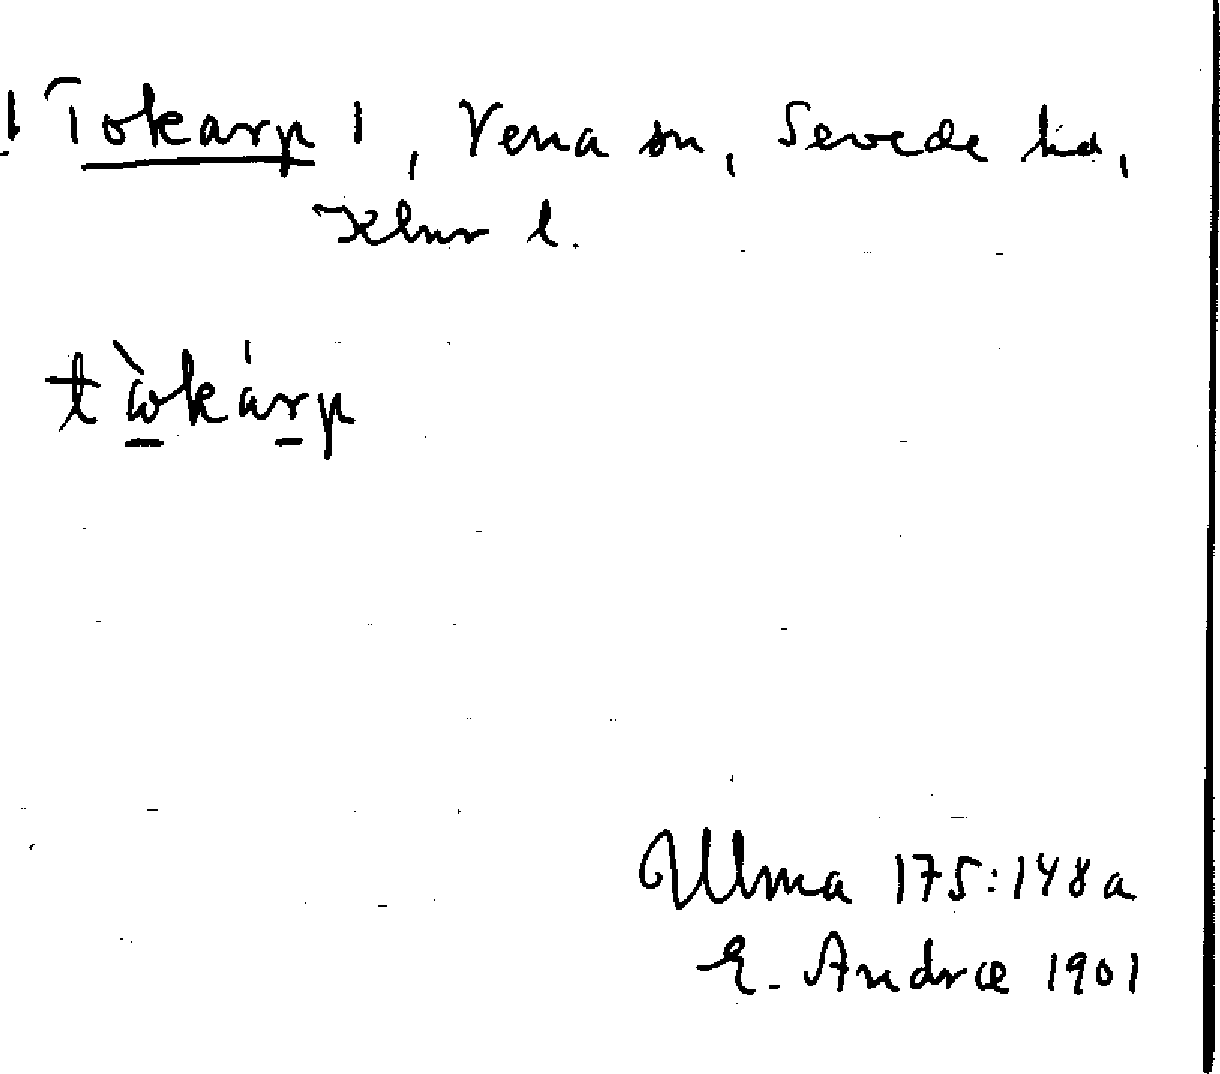 | Tokarp |, Vena sn, Sevede hd,
Klmr l.
tòkárp
Ulma 175:148a
E. Andræ 1901